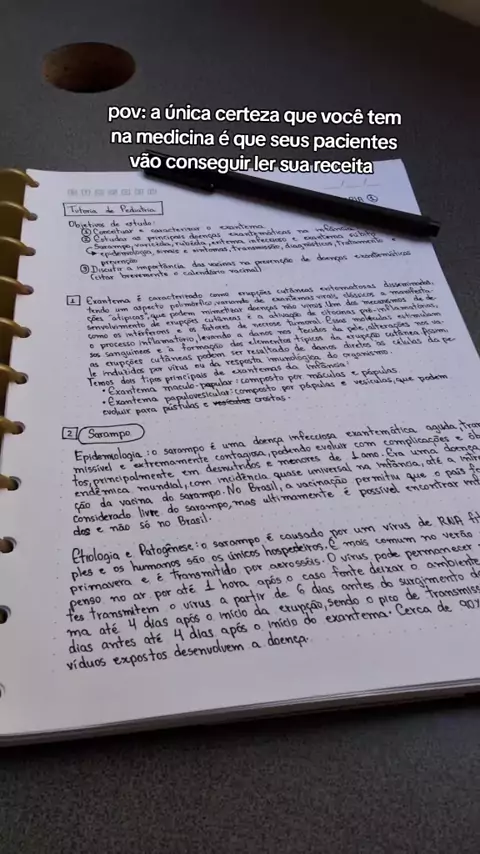 pov: a única certeza que você tem
na medicina é que seus pacientes
vão conseguir ler sua receita
Tutoria de Pediatria
Objetivos de estudo:
① Conceituar e caracterizar o exantema
② Estudar as principais doenças exantemáticas na infância
Sarampo, varicela, rubéola, eritema infeccioso e exantema súbito
↳ epidemiologia, sinais e sintomas, transmissão, diagnósticos, tratamento e
prevenção
③ Discutir a importância das vacinas na prevenção de doenças exantemáticas
(citar brevemente o calendário vacinal)
1 Exantema é caracterizado como erupções cutâneas eritematosas disseminadas,
tendo um aspecto polimórfico, variando de exantemas virais clássicos a manifesta-
ções "atípicas", que podem mimetizar doenças não virais. Um dos mecanismos de de-
senvolvimento de erupções cutâneas é a ativação de citocinas pró-inflamatórias,
como os interferons e os fatores de necrose tumoral. Essas moléculas estimulam
o processo inflamatório, levando a danos nos tecidos da pele, alterações nos va-
sos sanguíneos e a formação dos elementos típicos da erupção cutânea. Ademais,
as erupções cutâneas podem ser resultado de danos diretos às células da pe-
le induzidos por vírus ou da resposta imunológica do organismo.
Temos dois tipos principais de exantemas da infância:
• Exantema maculo-papular: composto por máculas e pápulas.
• Exantema papulovesicular: composto por pápulas e vesículas, que podem
evoluir para pústulas e crostas.
2 Sarampo
Epidemiologia: o sarampo é uma doença infecciosa exantemática aguda, tran
missível e extremamente contagiosa, podendo evoluir com complicações e ób
tos, principalmente em desnutridos e menores de 1 ano. Era uma doença
endêmica mundial, com incidência quase universal na infância, até a
ção da vacina do sarampo. No Brasil, a vacinação permitiu que o país fo
considerado livre do sarampo, mas ultimamente é possível encontrar
dos e não só no Brasil.
Etiologia e Patogênese: o sarampo é causado por um vírus de RNA fit
ples e os humanos são os únicos hospedeiros. É mais comum no verão
primavera e é transmitido por aerossóis. O vírus pode permanecer
penso no ar por até 1 hora após o caso fonte deixar o ambiente
tes transmitem o vírus a partir de 6 dias antes do surgimento do
ma até 4 dias após o início da erupção, sendo o pico de transmiss
dias antes até 4 dias após o início do exantema. Cerca de 90%
víduos expostos desenvolvem a doença.